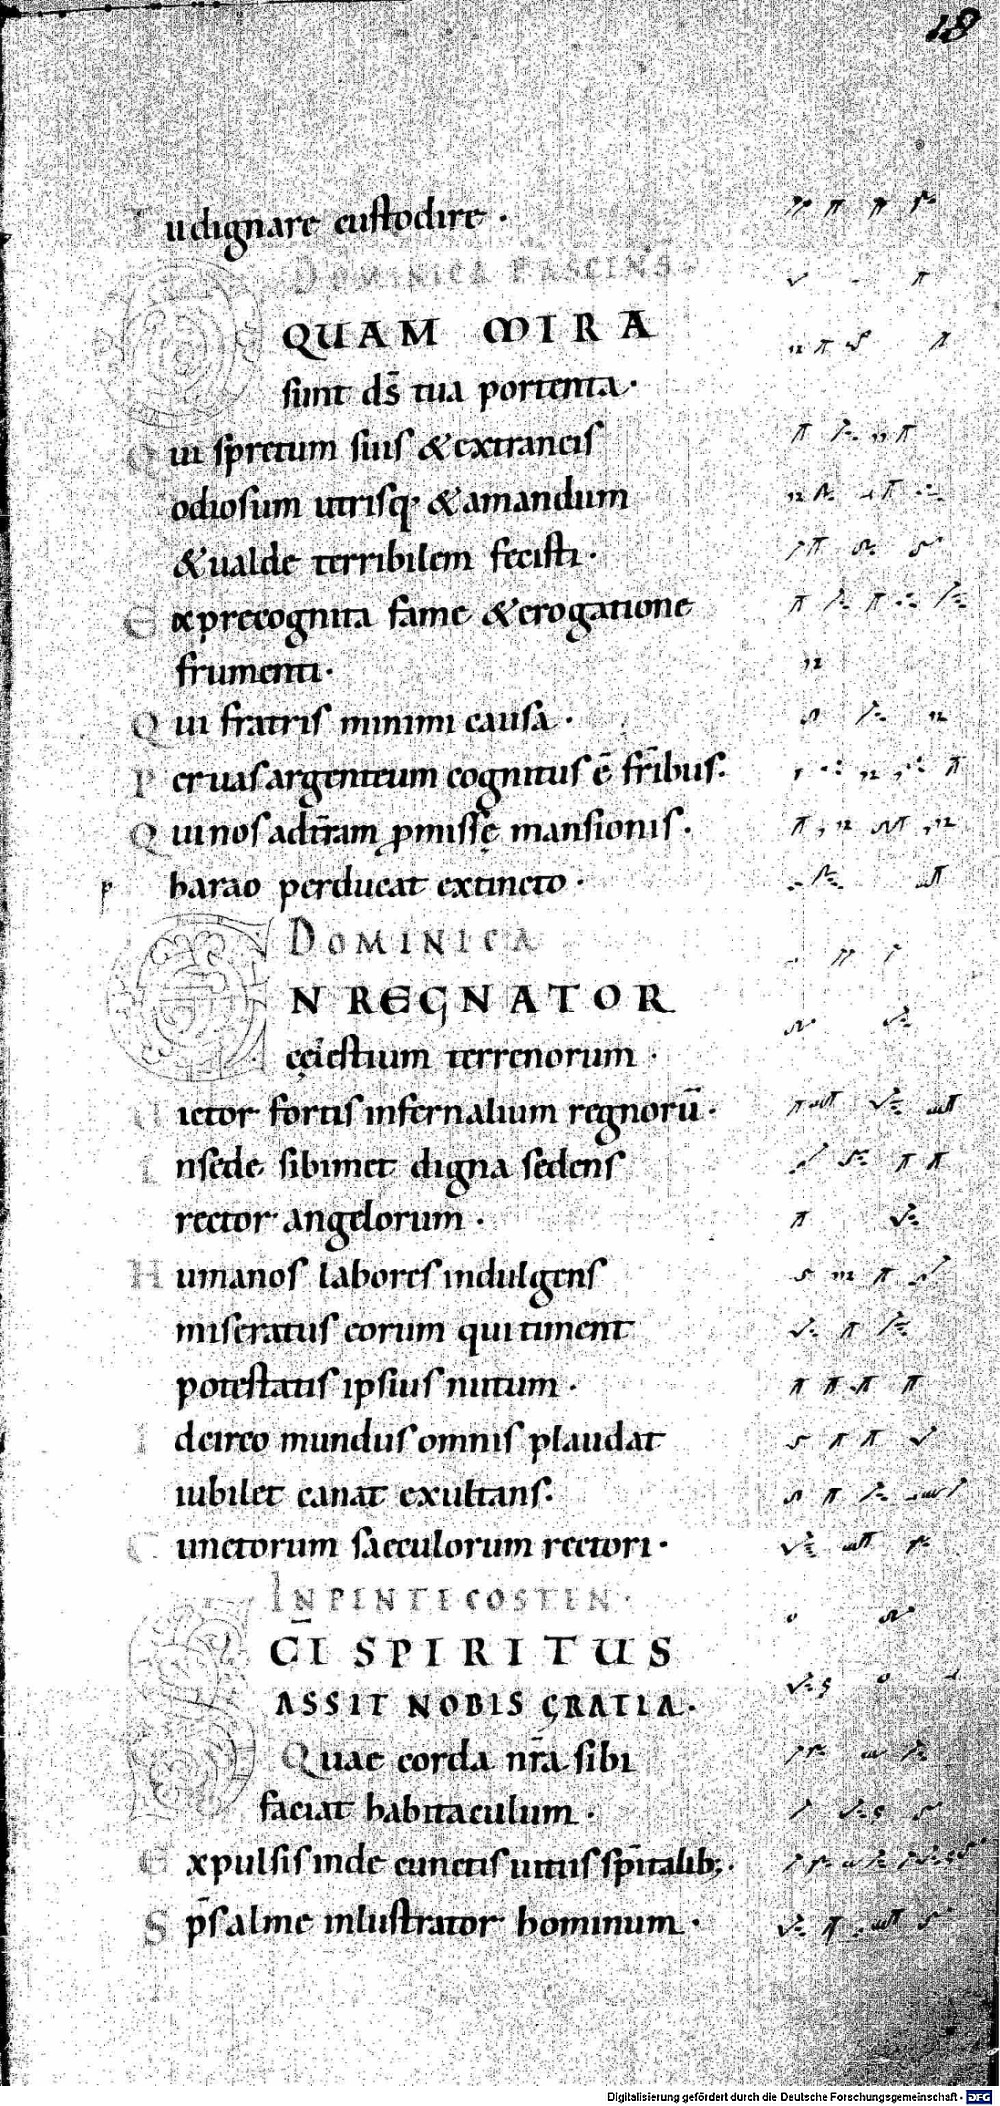 18
Tu dignare custodire .
DOMINICA PASCENS.
O QUAM MIRA
sunt ds̄ tua portenta.
Qui spretum suis & extraneis
odiosum utrisq. & amandum
& ualde terribilem fecisti.
Ex precognita fame & erogatione
frumenti.
Qui fratris minimi causa.
Per uas argenteum cognitus ē frībus.
Qui nos ad tr̄am p̱missę mansionis.
pharao perducat extincto.
DOMINICA
EN REGNATOR
cęlestium terrenorum .
Uictor fortis infernalium regnorū.
In sede sibimet digna sedens
rector angelorum .
Humanos labores indulgens
miseratus eorum qui timent
potestatis ipsius nutum .
Idcirco mundus omnis plaudat
iubilet canat exultans.
Cunctorum saeculorum rectori.
IN PENTECOSTEN.
SC̄I SPIRITUS
ASSIT NOBIS GRATIA.
Quae corda nr̄a sibi
faciat habitaculum .
Expulsis inde cunctis uitiis spīitalib;.
Sp̄s alme inlustrator hominum .
Digitalisierung gefördert durch die Deutsche Forschungsgemeinschaft - DFG